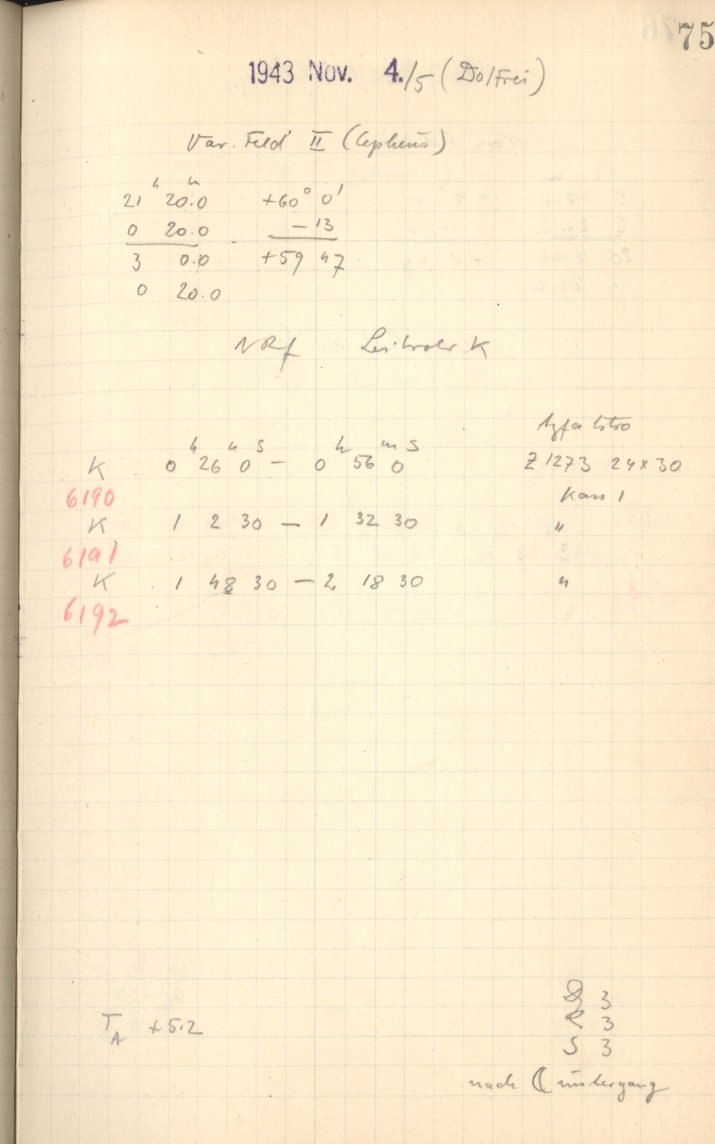 75
1943 Nov. 4./5 (Do/Frei)
Var. Feld II (Cepheus)
21 h 20.0 m +60° 0'
0 20.0 - 13
3 0.0 +59 47
0 20.0
NRf Leitrohr K
Agfa Astro
K 0 h 26 m 0 s — 0 h 56 m 0 s Z 1273 24x30
6190 Kass 1
K 1 2 30 — 1 32 30 "
6191
K 1 48 30 — 2 18 30 "
6192
3
T_A +5.2 R 3
S 3
nach ☾ untergang